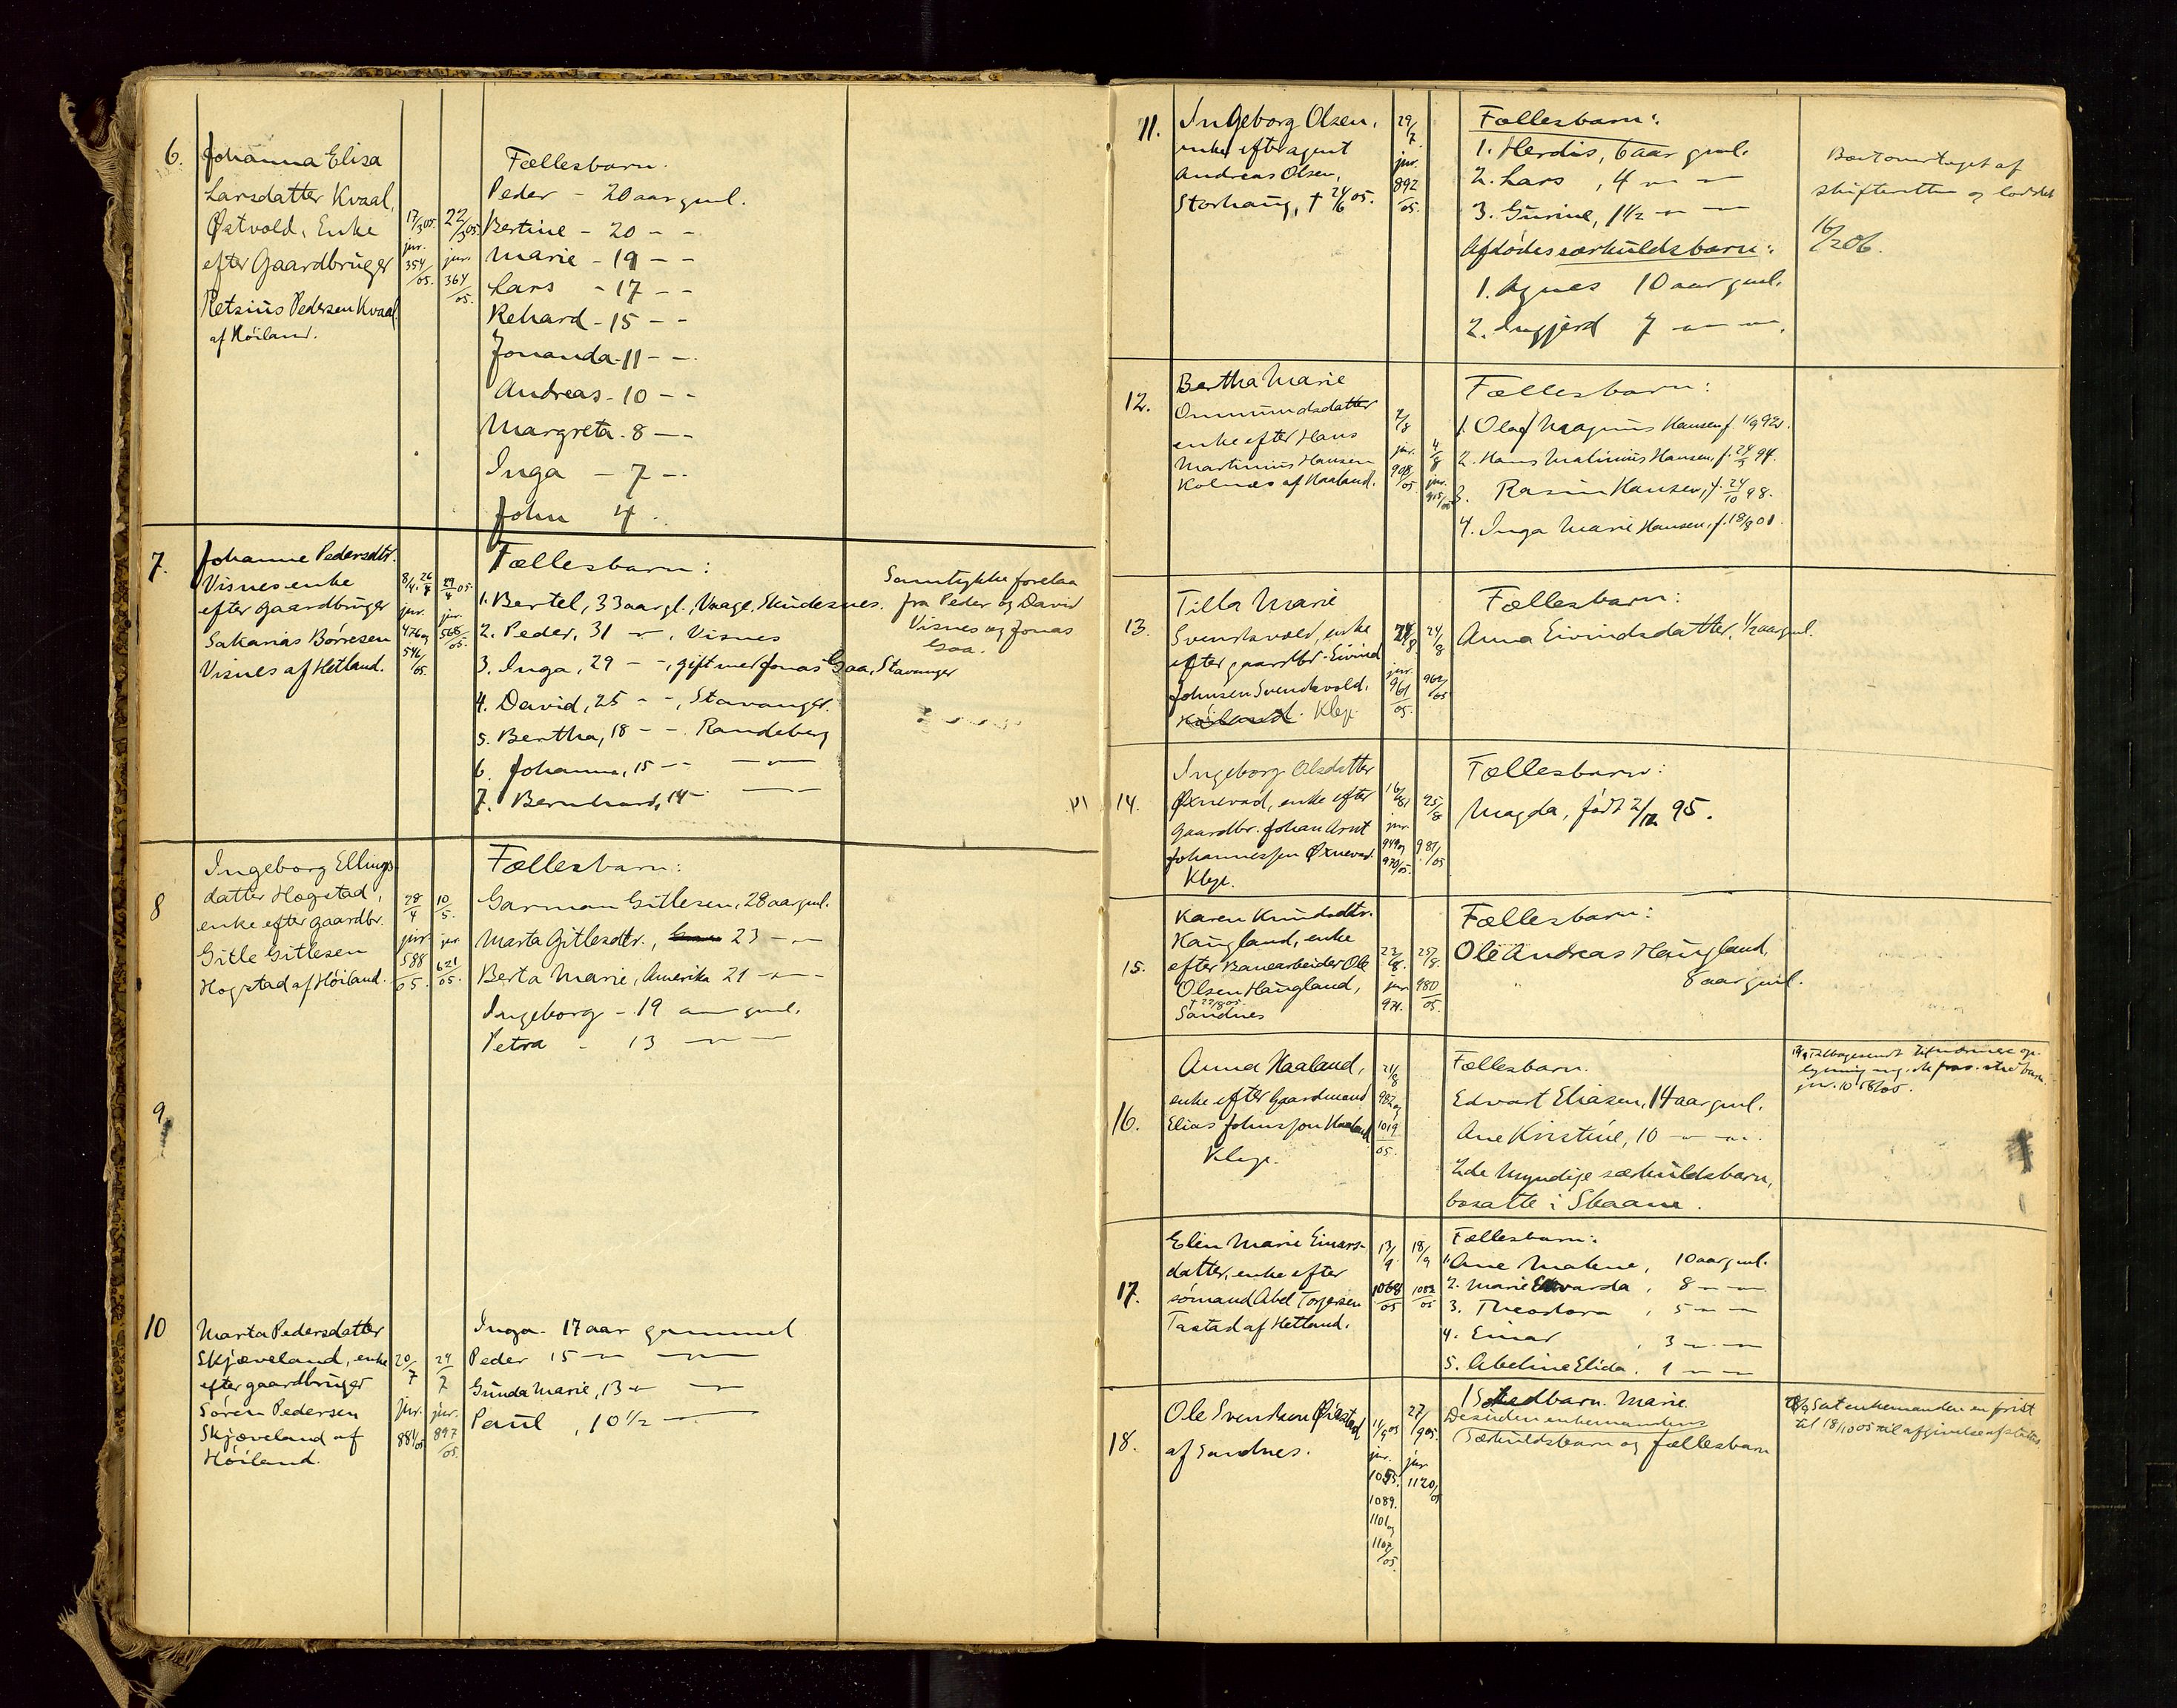 6.
Johanna Elisa
Larsdatter Kvaal,
Østvold, Enke
efter Gaardbruger
Retsius Pedersen Kvaal
af Høiland.
17/3 05.
jnr.
354/05.
22/3 05.
jnr.
364/05.
Fællesbarn.
Peder – 20 aar gml.
Bertine – 20 – –
Marie – 19 – –
Lars – 17 – –
Rehard – 15 – –
Jonanda – 11 – –
Andreas – 10 – –
Margreta – 8 – –
Inga – 7 – –
John 4 –
7.
Johanne Pedersdtr.
Visnes enke
efter gaardbruger
Sakarias Børresen
Visnes af Hetland.
8/4. 26/4
jnr.
476 og
546/05.
29/4 05.
jnr.
568/05.
Fællesbarn:
1. Bertel, 33 aar gl., Vaage, Skudesnes.
2. Peder, 31 – " –, Visnes
3. Inga, 29 – –, gift med Jonas Goa, Stavanger
4. David, 25 – –, Stavanger.
5. Bertha, 18 – – Randeberg
6. Johanna, 15 – – – " –
7. Bernhard, 14 – – – " –
Samtykke forelaa
fra Peder og David
Visnes og Jonas
Goa.
8
Ingeborg Ellings-
datter Hogstad,
enke efter gaardbr.
Gitle Gitlesen
Hogstad af Høiland.
28/4
jnr.
588/05.
10/5.
jnr.
621/05.
Fællesbarn:
Garman Gitlesen, 28 aar gml.
Marta Gitlesdtr., 23 – " –
Berta Marie, Amerika 21 – " –
Ingeborg – 19 aar gml.
Petra – 13 – " – –
9
10
Marta Pedersdatter
Skjæveland, enke
efter gaardbruger
Søren Pedersen
Skjæveland af
Høiland.
20/7
jnr.
881/05
24/7
jnr.
897/05.
Inga – 17 aar gammel
Peder 15 – " – – " –
Gunda Marie, 13 – " – – " –
Paul, 10 ½ – " –
11.
Ingeborg Olsen,
enke eft. agent
Andreas Olsen,
Storhaug, † 24/6 05.
29/7.
jnr.
892/05.
Fællesbarn:
1. Herdis, 6 aar gml.
2. Lars, 4 – " – –
3. Gurine, 1½ – " – –
Afdødes særkuldsbarn:
1. Agnes 10 aar gml.
2. Ingjerd 7 – " – " –.
Boet overtaget af
skifteretten og loddet
16/2 06.
12.
Bertha Marie
Ommundsdatter
enke efter Hans
Martinius Hansen
Kolnes af Haaland.
2/8
jnr.
908/05
4/8
jnr.
915/05
Fællesbarn:
1. Olaf Magnus Hansen f. 1/9 92.
2. Hans Malinius Hansen, f. 24/5 94.
3. Rasm Hansen, f. 24/10 98.
4. Inga Marie Hansen, f. 18/8 01.
13.
Tilla Marie
Svendsvold, enke
efter gaardbr. Eivind
Johnsen Svendsvold.
Høiland. Klep
24/8
jnr.
961/05.
24/8
962/05
Fællesbarn:
Anna Eivindsdatter, ½ aar gml.
14.
Ingeborg Olsdatter
Øxnevad, enke efter
gaardbr. Johan Arnt
Johannessen Øxnevad.
Klep.
16/8
jnr.
949 og
970/05.
25/8
981/05
Fællesbarn:
Magda, født 2/12 95.
15.
Karen Knudsdtr.
Haugland, enke
efter Banearbeider Ole
Olsen Haugland,
† 22/8 05.
Sandnes
23/8.
jnr
974.
25/8.
980/05.
Fællesbarn:
Ole Andreas Haugland,
8 aar gml.
16.
Anna Haaland,
enke efter Gaardmand
Elias Johnsson Haaland
Klep.
21/8
982 og
1019/05.
Fællesbarn.
Edvart Eliasen, 14 aar gml.
Ane Kristine, 10 – " – " –.
2de myndige særkuldsbarn,
bosatte i Skaane.
jnr. 1058/05.
17.
Elen Marie Einars-
datter, enke efter
sømand Abel Torjersen
Tastad af Hetland.
13/9
1068/05
18/9
1082/05
Fællesbarn:
1. Ane Malene, 10 aar gml.
2. Marie Edvarda, 8 – " –
3. Theodora, 5 – " –
4. Einar, 3 – " –
5. Abeline Elida, 1 – " –
18.
Ole Svendsen
af Sandnes.
11/9 05
jnr.
1055.
1089.
1101 og
1107/05
27/9 05.
jnr
1120/05
1 Stedbarn. Marie.
Desuden enkemandens
Særkuldsbarn og fællesbarn
Sat enkemanden en frist
til 18/10 05 til afgivelse af status